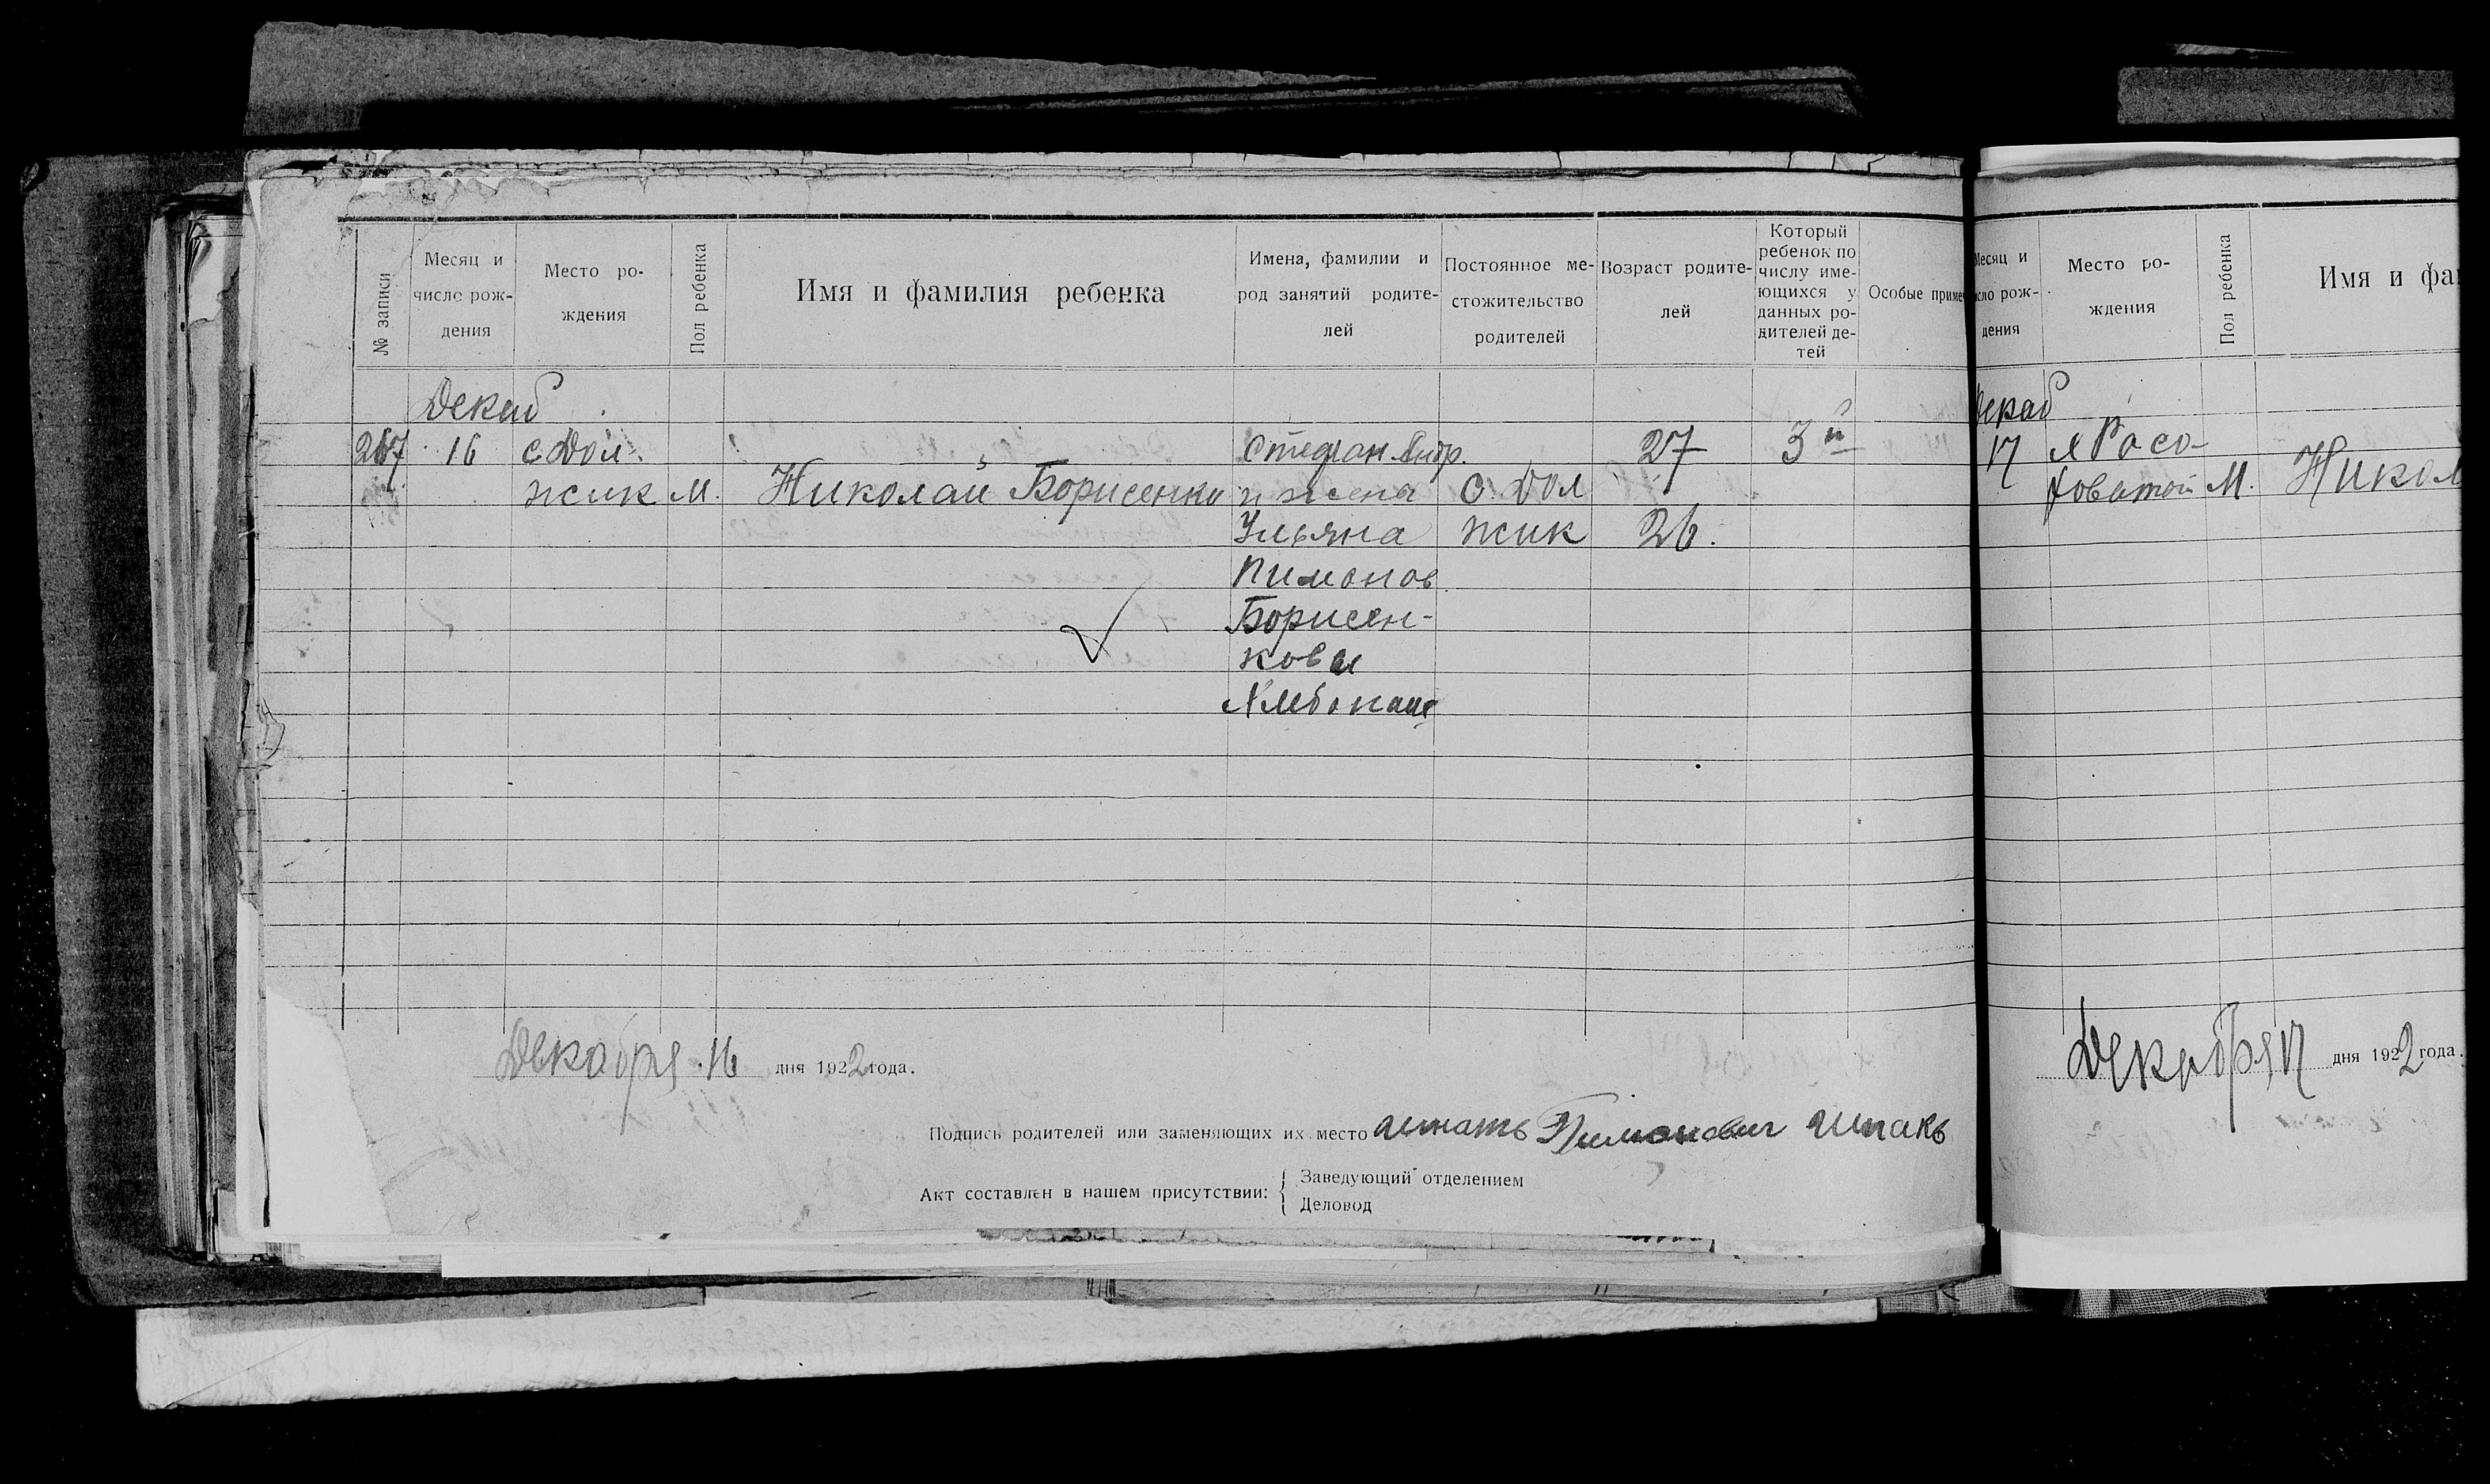 № записи
Месяц и число рож-
дения
Место ро-
ждения
Пол ребенка
Имя и фамилия ребенка
Имена, фамилии и
род занятий родите-
лей
Постоянное ме-
стожительство
родителей
Возраст родите-
лей
Который
ребенок по
числу име-
ющихся у
данных ро-
дителей де-
тей
Особые приме
Декаб
267 16 с. Дол. Стефан Андр. 27 3й
жик М. Николай Борисенко и жена с. Дол
Ульяна жик 26.
Пимонов
Борисен-
ковы
Хлебопаш
Декабря 16 дня 1922 года.
Подпись родителей или заменяющих их место Пимонович Шпакъ
Акт составлен в нашем присутствии: Заведующий отделением
Деловод
Месяц и
число рож-
дения
Место ро-
ждения
Пол ребенка
Имя и фа
Декаб
17 х Росо-
ховатой М. Никол
Декабря 17 дня 1922 года.